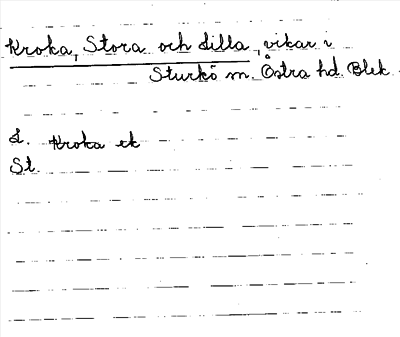 Kroka, Stora och Lilla, vikar i
Sturkö sn. Östra hd. Blek.
L. Kroka ek
St.